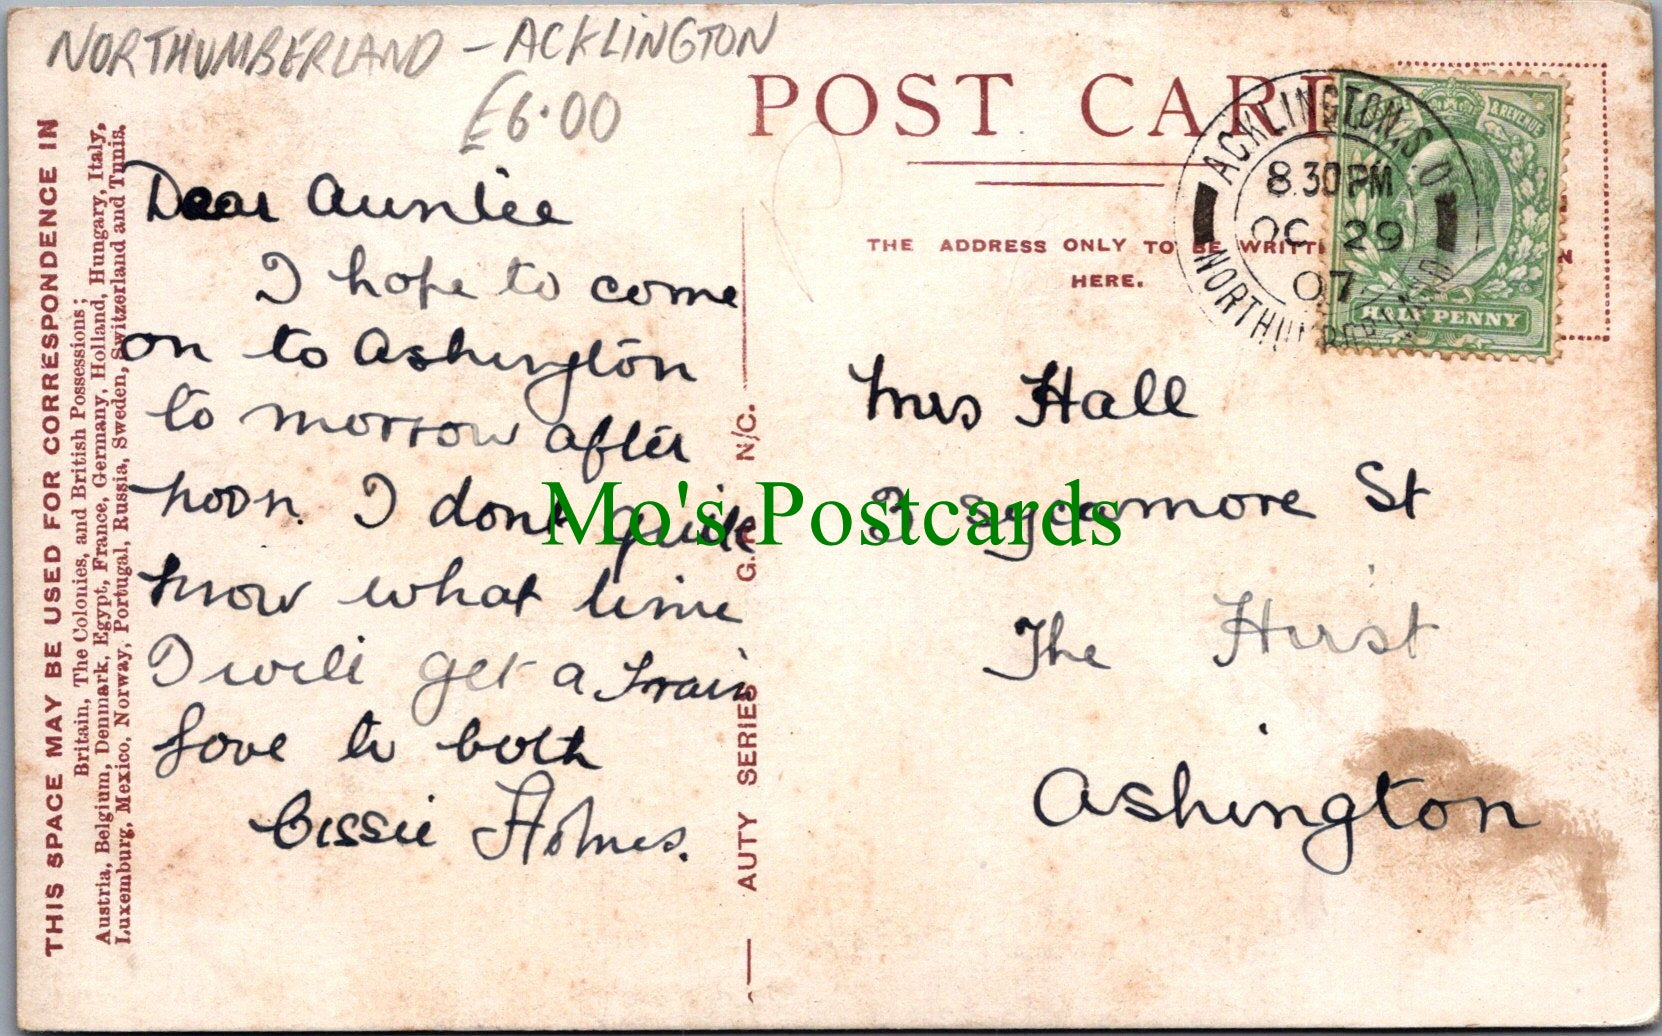 NORTHUMBERLAND - ACKLINGTON
£6.00
POST CARD
THE ADDRESS ONLY TO BE WRITTEN
HERE.
ACKLINGTON S.O
8.30PM
OC 29
07
NORTHUMBERLAND
& REVENUE
HALF PENNY
THIS SPACE MAY BE USED FOR CORRESPONDENCE IN
Britain, The Colonies, and British Possessions;
Austria, Belgium, Denmark, Egypt, France, Germany, Holland, Hungary, Italy,
Luxemburg, Mexico, Norway, Portugal, Russia, Sweden, Switzerland and Tunis.
Dear Auntie
I hope to come
on to Ashington
to morrow after
noon. I dont quite
know what time
I will get a train
Love to both
Cissie Holmes.
AUTY SERIES G. N/C.
Mrs Hall
Sycamore St
The Hirst
Ashington
Mo's Postcards